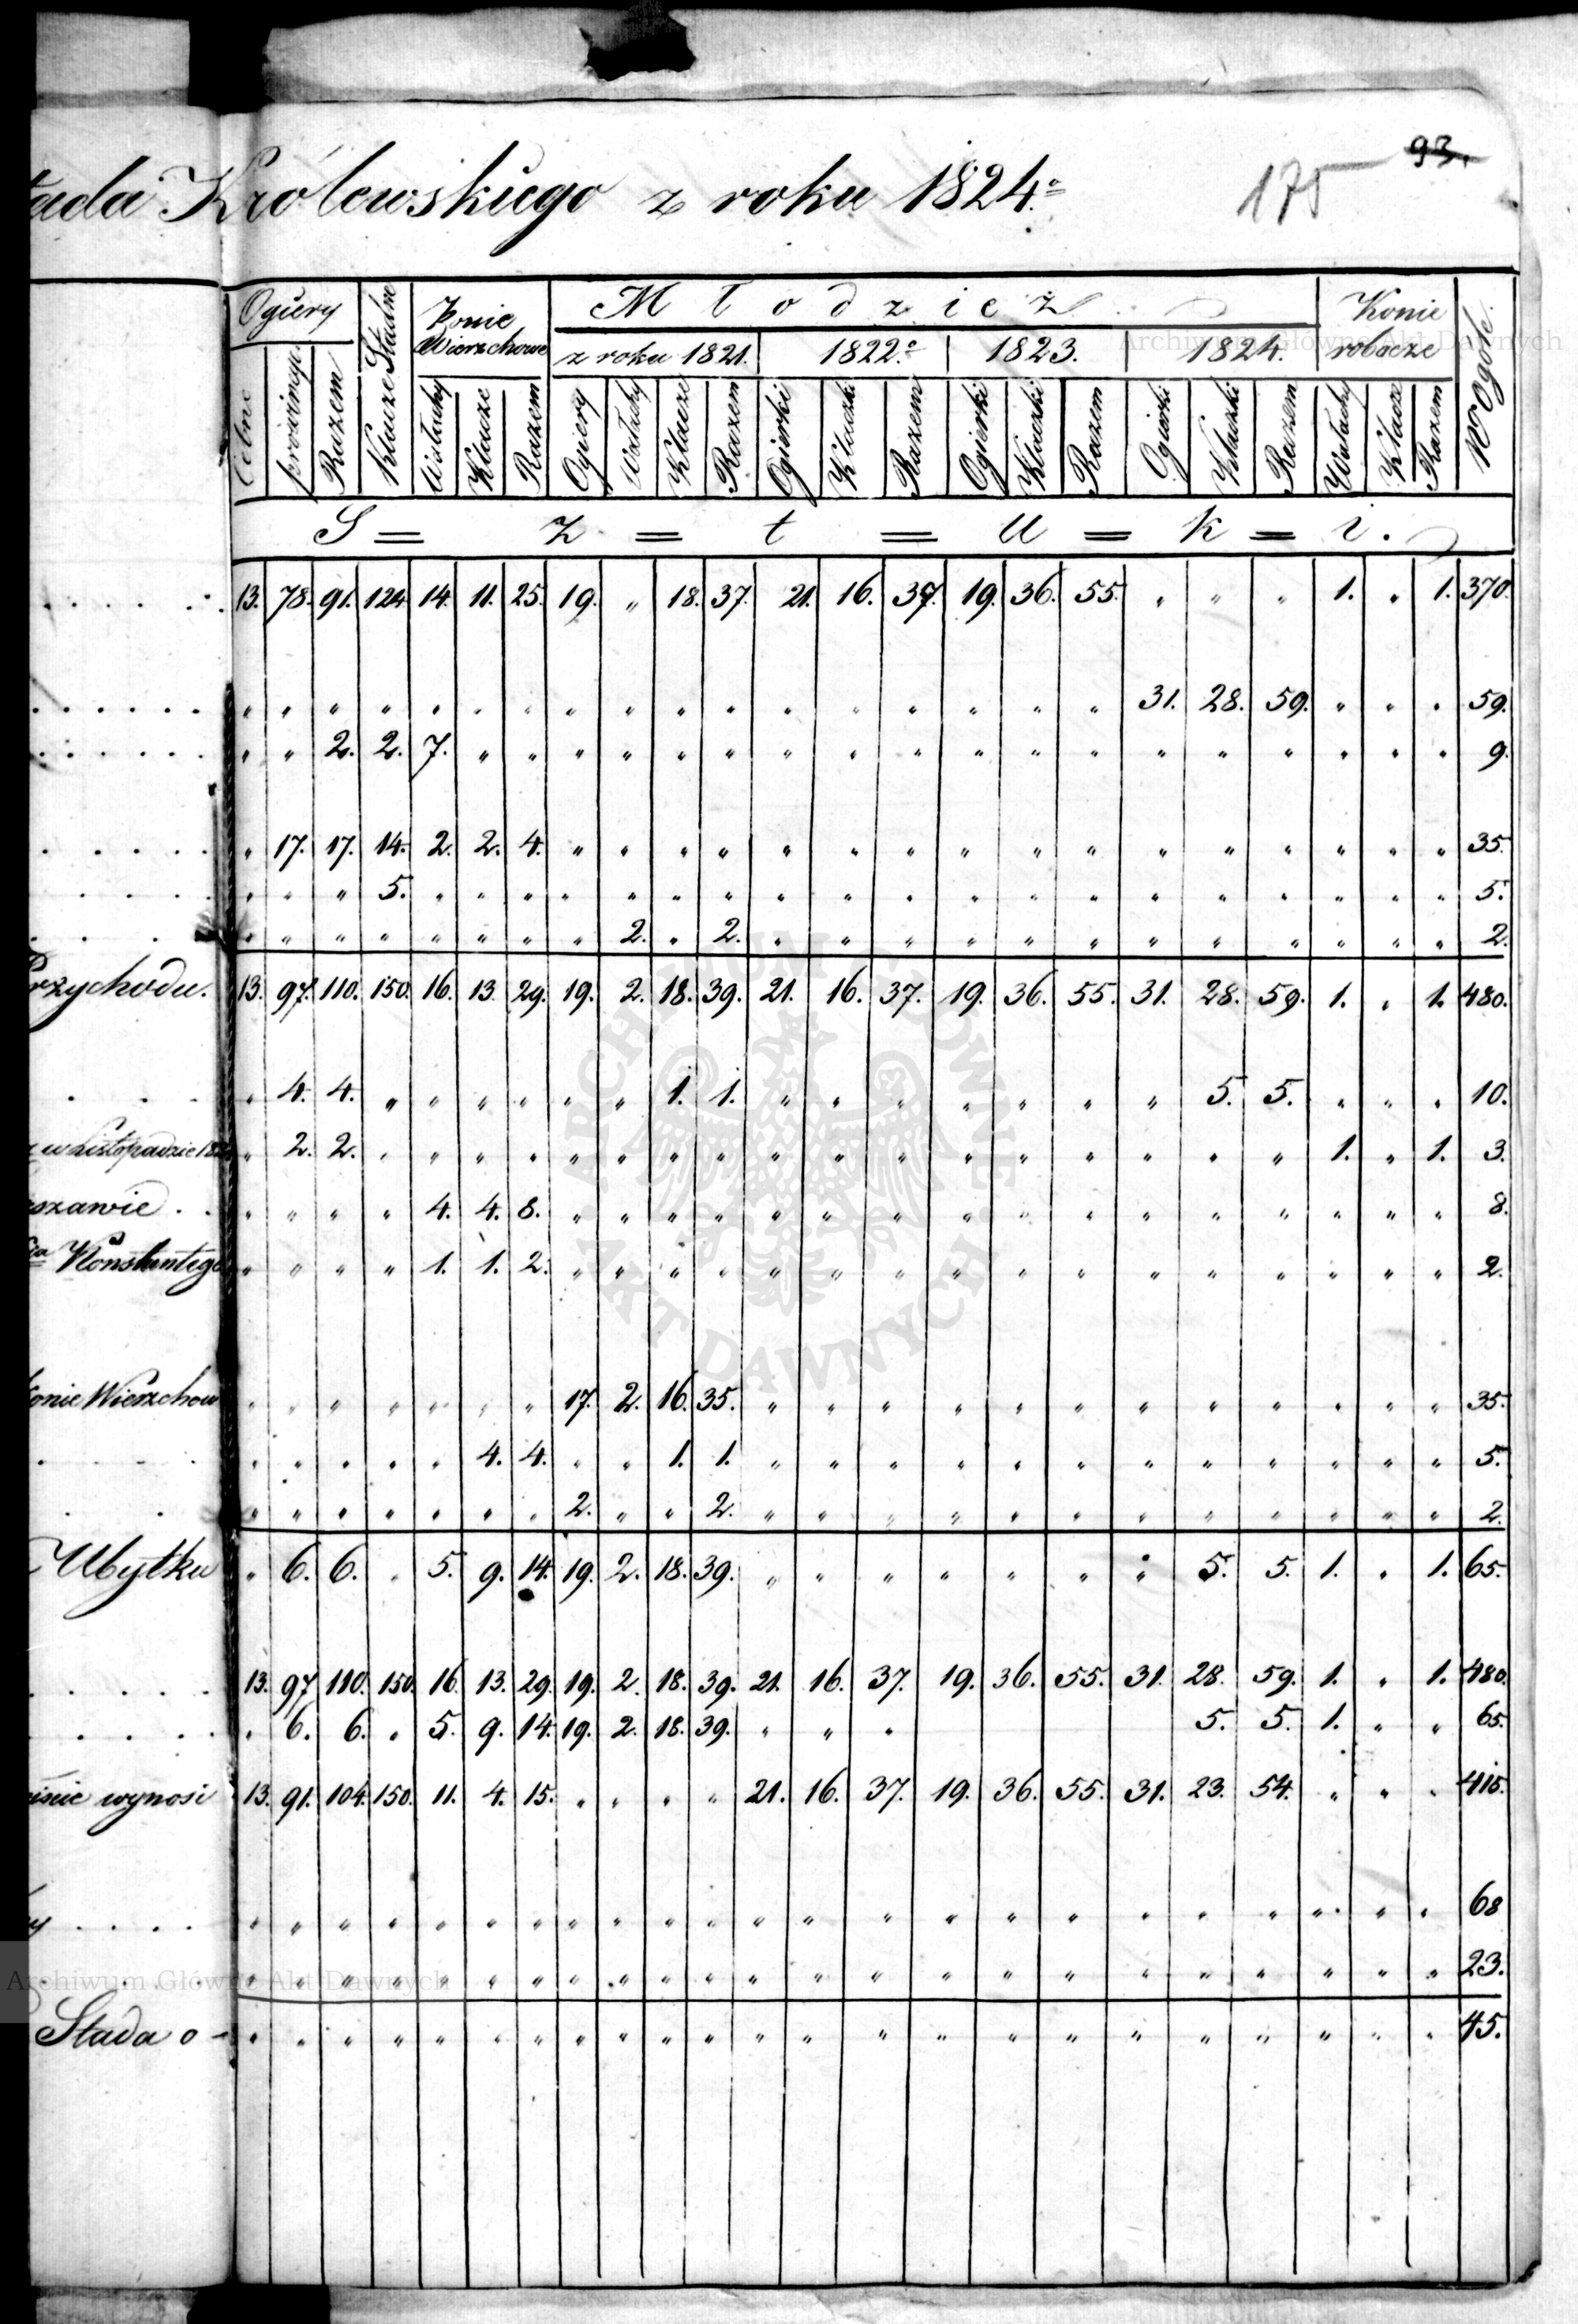 93.
175
tada Królewskiego z roku 1824o
Ogiery Klacze Stadne Konie Wierzchowe Młodzież Konie robocze W Ogóle.
z roku 1821. 1822o 1823. 1824.
Celne prowincya. Razem Wałachy Klacze Razem Ogiery Wałachy Klacze Razem Ogierki Klaczki Razem Ogierki Klaczki Razem Ogierki Klaczki Razem Wałachy Klacze Razem
S = z = t = u = k = i.
. . . . . . 13. 78. 91. 124 14. 11. 25. 19. „ 18. 37. 21. 16. 37. 19. 36. 55. „ „ „ 1. „ 1. 370.
. . . . . . „ „ „ „ „ „ „ „ „ „ „ „ „ „ „ „ „ 31. 28. 59. „ „ „ 59.
. . . . . . „ „ 2. 2. 7. „ „ „ „ „ „ „ „ „ „ „ „ „ „ „ „ „ „ 9.
. . . . . „ 17. 17. 14. 2. 2. 4. „ „ „ „ „ „ „ „ „ „ „ „ „ „ „ „ 35.
. . . . . „ „ „ 5. „ „ „ „ „ „ „ „ „ „ „ „ „ „ „ „ „ „ „ 5.
. . . . „ „ „ „ „ „ „ „ 2. „ 2. „ „ „ „ „ „ „ „ „ „ „ „ 2.
Przychodu. 13. 97. 110. 150. 16. 13. 29. 19. 2. 18. 39. 21. 16. 37. 19. 36. 55. 31. 28. 59. 1. „ 1. 480.
. . . „ 4. 4. „ „ „ „ „ „ 1. 1. „ „ „ „ „ „ „ 5. 5. „ „ „ 10.
w Listopadzie 182 „ 2. 2. „ „ „ „ „ „ „ „ „ „ „ „ „ „ „ „ „ 1. „ 1. 3.
szawie . . „ „ „ „ 4. 4. 8. „ „ „ „ „ „ „ „ „ „ „ „ „ „ „ „ 8.
cia Konstantego „ „ „ „ 1. 1. 2. „ „ „ „ „ „ „ „ „ „ „ „ „ „ „ „ 2.
Konie Wierzchow „ „ „ „ „ „ „ 17. 2. 16. 35. „ „ „ „ „ „ „ „ „ „ „ „ 35.
. . . . „ „ „ „ „ 4. 4. „ „ 1. 1. „ „ „ „ „ „ „ „ „ „ „ „ 5.
. . . „ „ „ „ „ „ „ 2. „ „ 2. „ „ „ „ „ „ „ „ „ „ „ „ 2.
Ubytku „ 6. 6. „ 5. 9. 14. 19. 2. 18. 39. „ „ „ „ „ „ „ 5. 5. 1. „ 1. 65.
. . . . . 13. 97 110. 150. 16. 13. 29. 19. 2. 18. 39. 21. 16. 37. 19. 36. 55. 31. 28. 59. 1. „ 1. 480.
. . . . . „ 6. 6. „ 5. 9. 14. 19. 2. 18. 39. „ „ „ 5. 5. 1. „ „ 65.
iście wynosi 13. 91. 104. 150. 11. 4. 15. „ „ „ „ 21. 16. 37. 19. 36. 55. 31. 23. 54. „ „ „ 415.
y . . . . „ „ „ „ „ „ „ „ „ „ „ „ „ „ „ „ „ „ „ „ „ „ „ 68
. . . . „ „ „ „ „ „ „ „ „ „ „ „ „ „ „ „ „ „ „ „ „ „ „ 23.
Stada o - „ „ „ „ „ „ „ „ „ „ „ „ „ „ „ „ „ „ „ „ „ „ „ 45.
Archiwum Główne Akt Dawnych
ARCHIWUM GŁÓWNE AKT DAWNYCH
Archiwum Główne Akt Dawnych